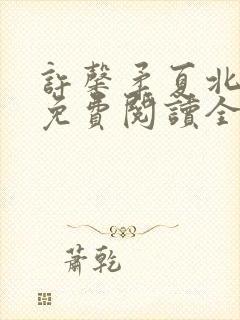 許馨矛夏北
免費閱讀全
蕭乾